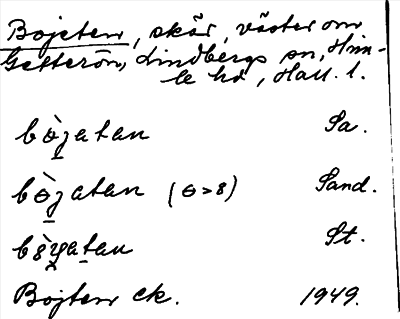 Bojeten, skär, väster om
Getterön, Lindbergs sn, Him-
le hd, Hall. l.
bòjatan Sa.
bòjatan (ɵ>8) Sand.
b8̀yatan St.
Bojten ek. 1949.